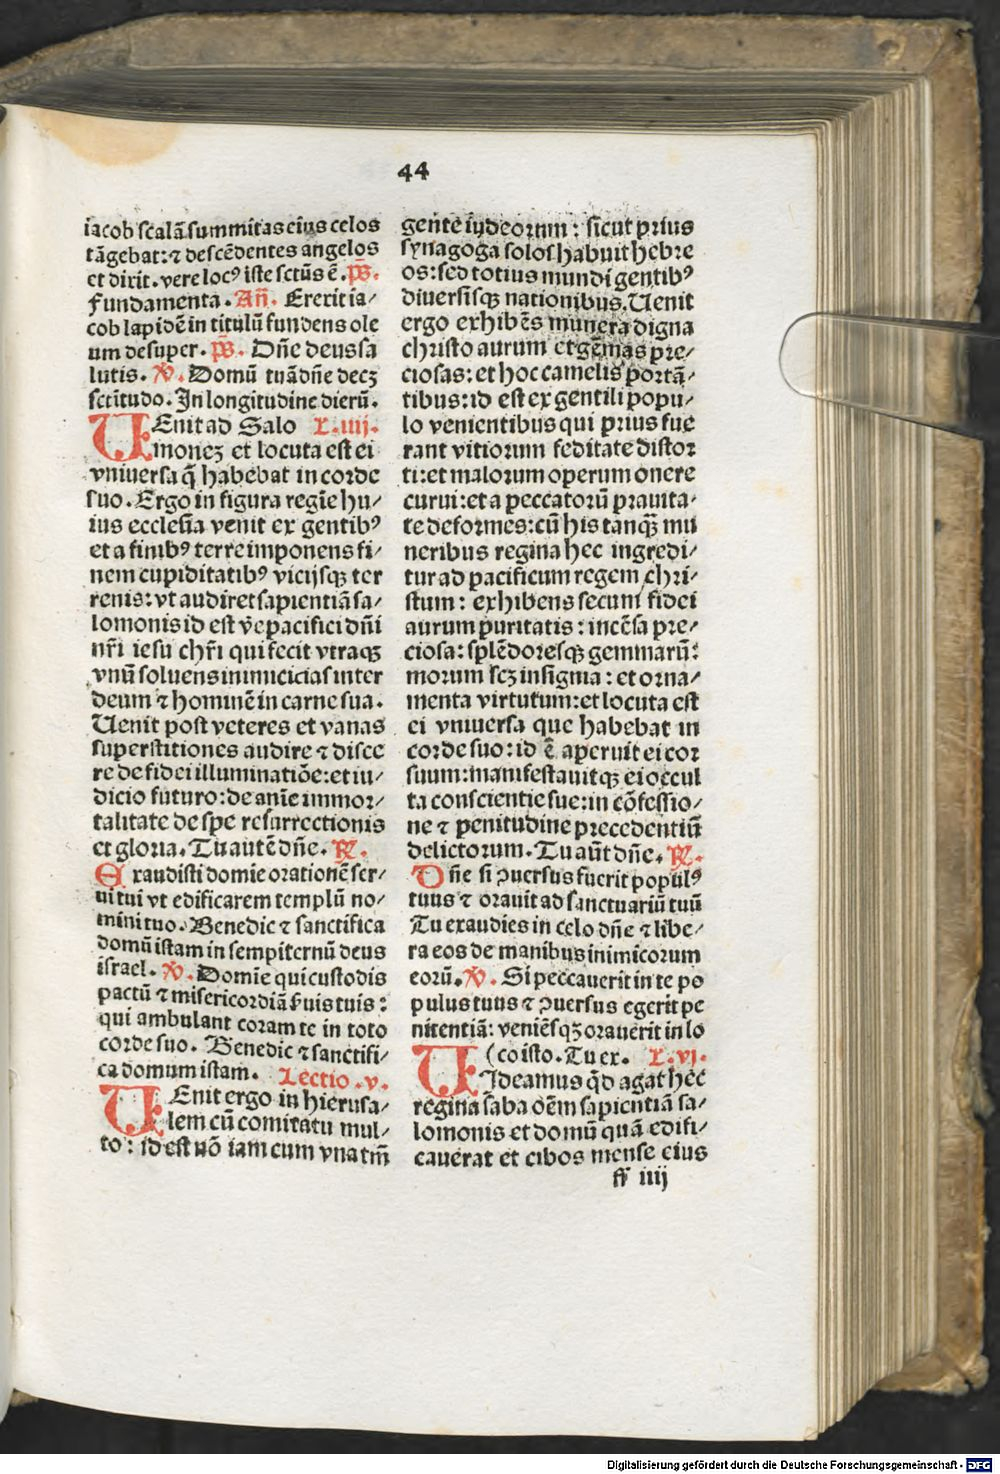 44
iacob scalã summitas eius celos
tãgebat: ⁊ descẽdentes angelos
et dixit. vere locꝰ iste sctũs ẽ. p̃s.
Fundamenta. Añ. Erexit ia⸗
cob lapidẽ in titulũ fundens ole
um desuper. p̃s. Dñe deus sa
lutis. ℣. Domũ tuã dñe decꝫ
sctĩtudo. In longitudine dierũ.
UEnit ad Salo L.iiij.
moneꝫ et locuta est ei
vniuersa q̃ habebat in corde
suo. Ergo in figura regĩe hu⸗
ius ecclesia venit ex gentibꝰ
et a finibꝰ terre imponens fi⸗
nem cupiditatibꝰ vicijsqꝫ ter
renis: vt audiret sapientiã sa⸗
lomonis id est ve pacifici dñi
nr̃i iesu chr̃i qui fecit vtraqꝫ
vnũ soluens inimicicias inter
deum ⁊ hominẽ in carne sua.
Uenit post veteres et vanas
superstitiones audire ⁊ disce
re de fidei illuminatiõe: et iu⸗
dicio futuro: de anĩe immor⸗
talitate de spe resurrectionis
et gloria. Tu autẽ dñe. ℟.
Exaudisti domĩe orationẽ ser⸗
ui tui vt edificarem templũ no⸗
mini tuo. Benedic ⁊ sanctifica
domũ istam in sempiternũ deus
israel. ℣. Domĩe qui custodis
pactũ ⁊ misericordiã ẜuis tuis:
qui ambulant coram te in toto
corde suo. Benedic ⁊ sanctifi⸗
ca domum istam. Lectio .v.
UEnit ergo in hierusa⸗
lem cũ comitatu mul⸗
to: id est nõ iam cum vna tm̃
gente iudeorum: sicut prius
synagoga solos habuit hebre
os: sed totius mundi gentibꝰ
diuersisqꝫ nationibus. Uenit
ergo exhibẽs munera digna
christo aurum et gẽmas pre⸗
ciosas: et hoc camelis portã⸗
tibus: id est ex gentili popu⸗
lo venientibus qui prius fue
rant vitiorum feditate distor
ti: et malorum operum onere
curui: et a peccatorũ prauita⸗
te deformes: cũ his tanqꝫ̃ mu
neribus regina hec ingredi⸗
tur ad pacificum regem chri⸗
stum: exhibens secum fidei
aurum puritatis: incẽsa pre⸗
ciosa: splẽdoresqꝫ gemmarũ:
morum scꝫ insignia: et orna⸗
menta virtutum: et locuta est
ei vniuersa que habebat in
corde suo: id ẽ aperuit ei cor
suum: manifestauitqꝫ ei occul
ta conscientie sue: in cõfessio⸗
ne ⁊ penitudine precedentiũ
delictorum. Tu aũt dñe. ℟.
Dñe si ꝯuersus fuerit populꝰ
tuus ⁊ orauit ad sanctuariũ tuũ
Tu exaudies in celo dñe ⁊ libe⸗
ra eos de manibus inimicorum
eorũ. ℣. Si peccauerit in te po
pulus tuus ⁊ ꝯuersus egerit pe
nitentiã: veniẽsqꝫ orauerit in lo
(co isto. Tu ex. L.vj.
UIdeamus qd̃ agat hec
regina saba oẽm sapientiã sa⸗
lomonis et domũ quã edifi⸗
cauerat et cibos mense eius
ff iiij
Digitalisierung gefördert durch die Deutsche Forschungsgemeinschaft - DFG